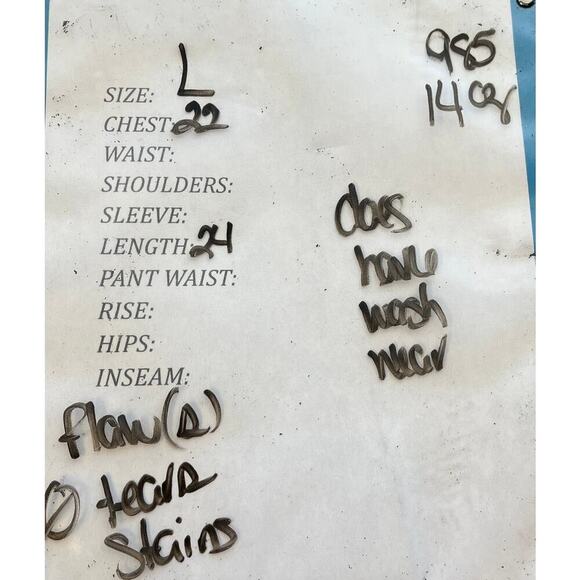 985
14 oz
SIZE: L
CHEST: 22
WAIST:
SHOULDERS:
SLEEVE:
LENGTH: 24
PANT WAIST:
RISE:
HIPS:
INSEAM:
does
have
wash
wear
flaw(s)
Ø tears
stains